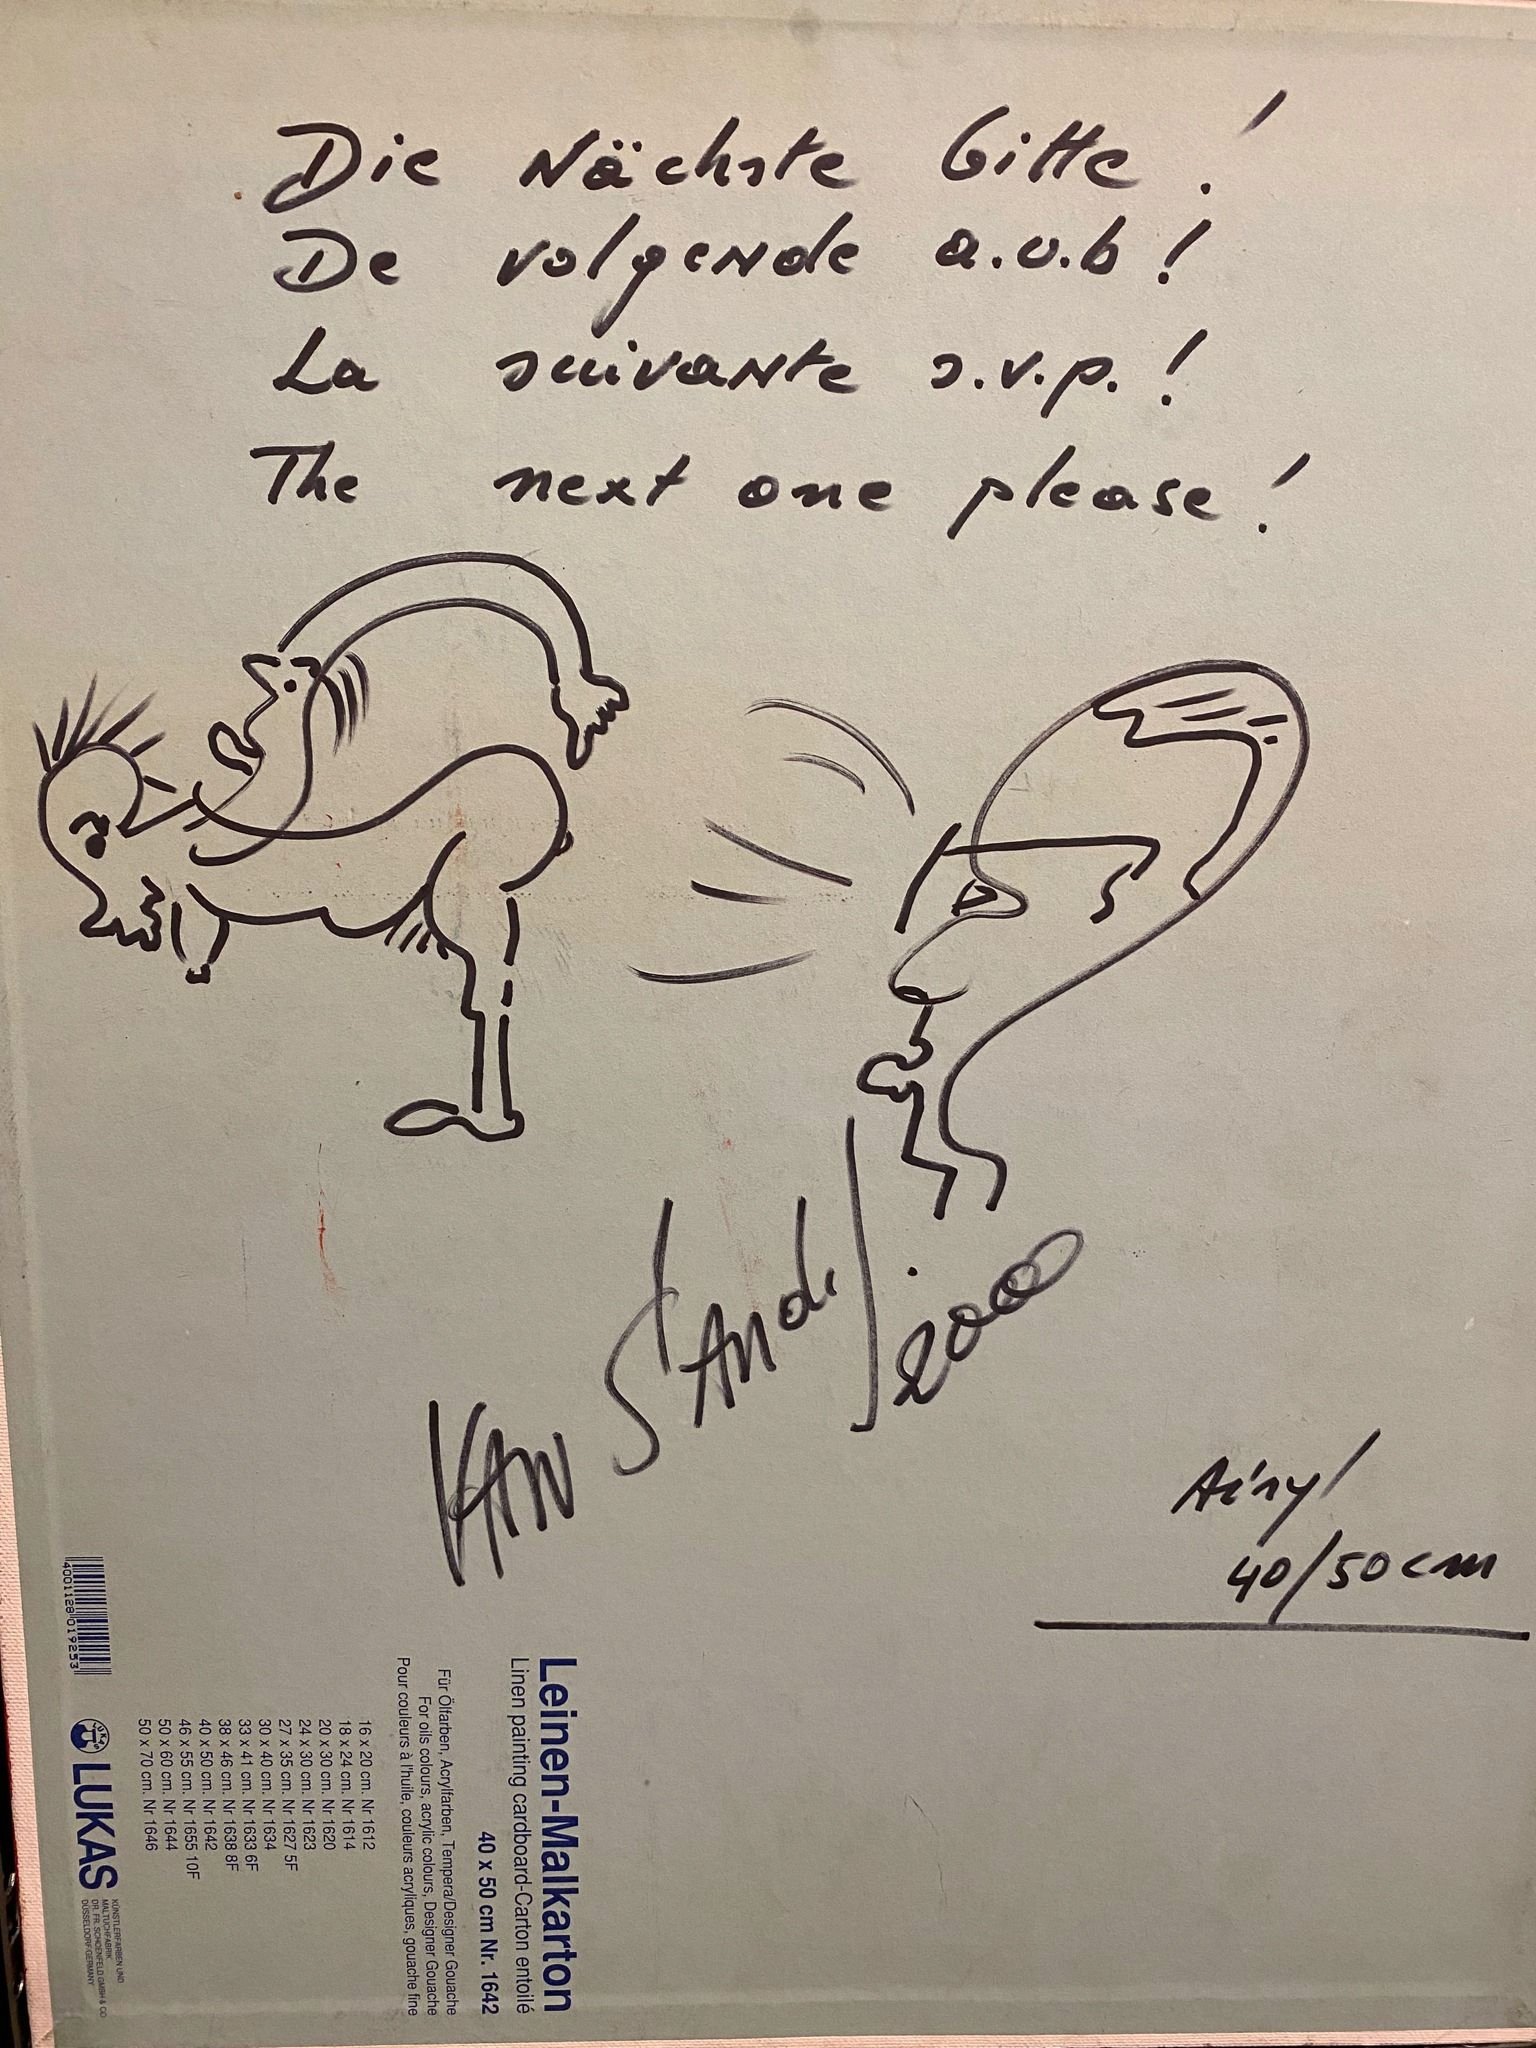 Die Nächste bitte!
De volgende a.u.b!
La suivante s.v.p.!
The next one please!
VAN
2000
40/50 cm
Leinen-Malkarton
Linen painting cardboard-Carton entoilé
40 x 50 cm Nr. 1642
Für Ölfarben, Acrylfarben, Tempera/Designer Gouache
For oils colours, acrylic colours, Designer Gouache
Pour couleurs à l'huile, couleurs acryliques, gouache fine
16 x 20 cm. Nr 1612
18 x 24 cm. Nr 1614
20 x 30 cm. Nr 1620
24 x 30 cm. Nr 1623
27 x 35 cm. Nr 1627 5F
30 x 40 cm. Nr 1634
33 x 41 cm. Nr 1633 6F
38 x 46 cm. Nr 1638 8F
40 x 50 cm. Nr 1642
46 x 55 cm. Nr 1655 10F
50 x 60 cm. Nr 1644
50 x 70 cm. Nr 1646
4001128 019253
LUKAS
KÜNSTLERFARBEN UND
MALTUCHFABRIK
DR. FR. SCHOENFELD GMBH & CO
DÜSSELDORF/GERMANY